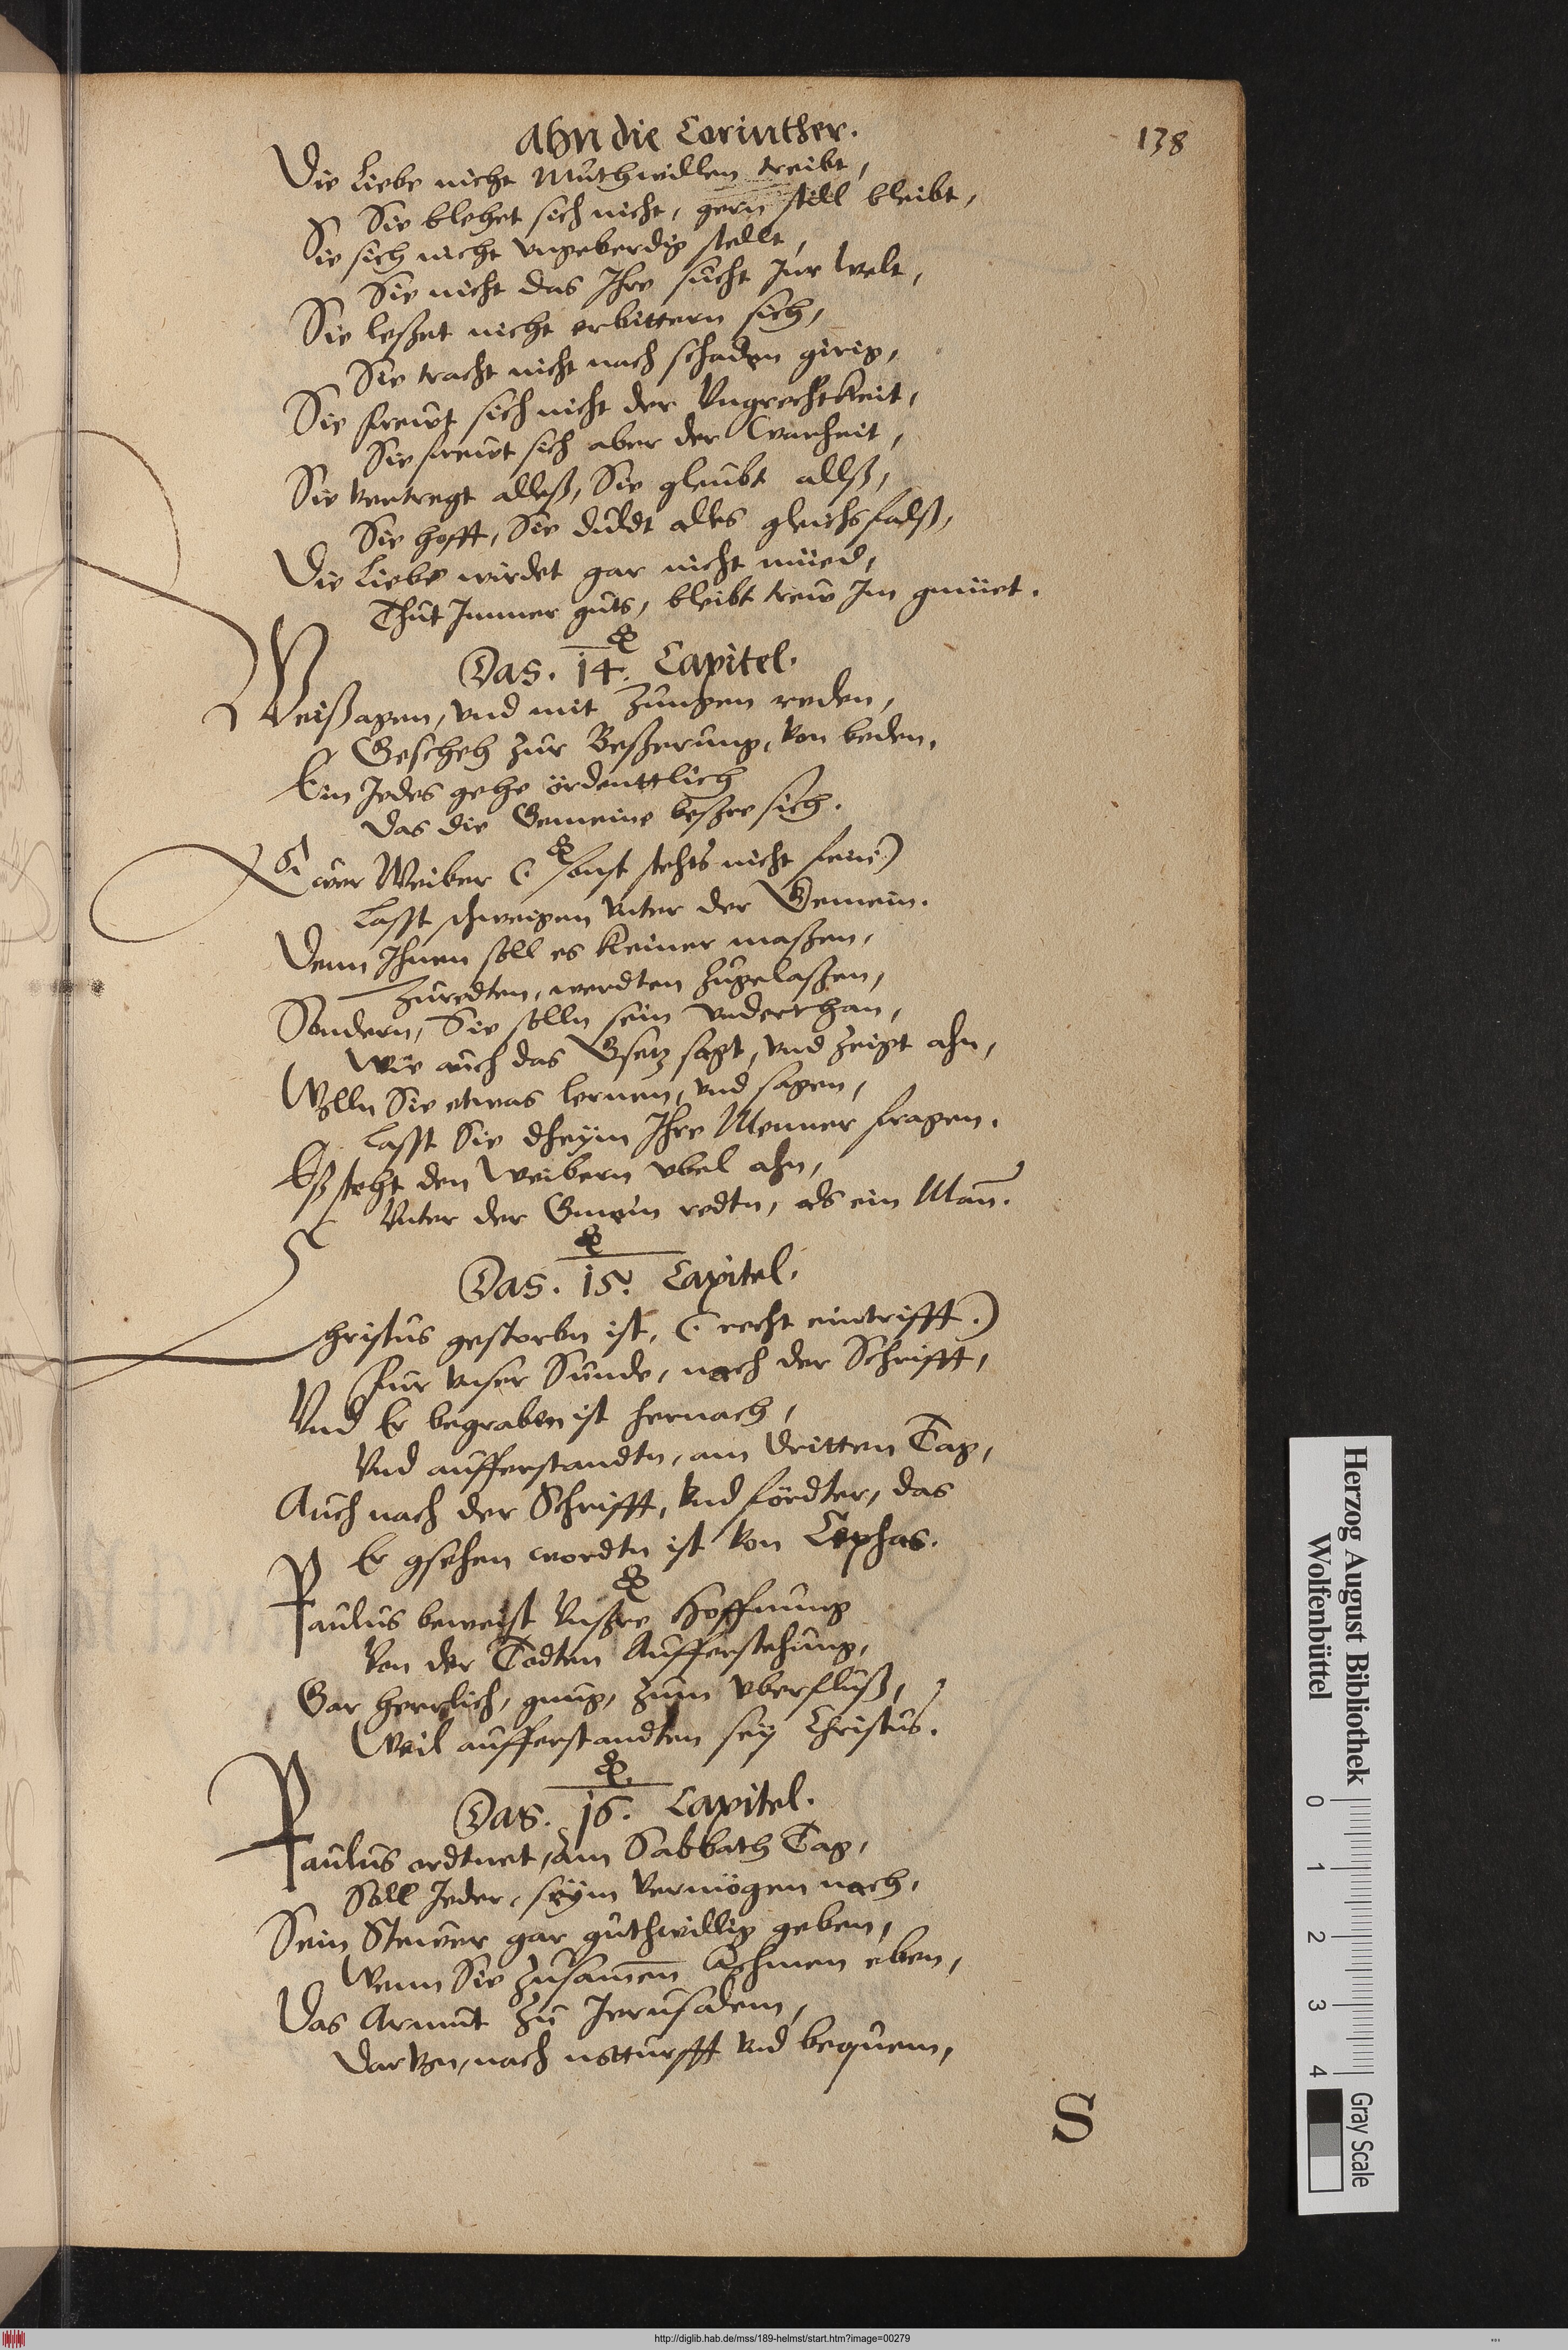 Ahn die Corinther.
138
Die Liebe nicht Muthwillen treibt,
Sie blehet sich nicht, gern still bleibt,
Sie sich nicht vngeberdig stellt,
Sie nicht das Ihre sucht Inr Welt,
Sie leßet nicht erbittern sich,
Sie tracht nicht nach schaden girig,
Sie frewt sich nicht der Vngrechtkeit,
Sie frewt sich aber der Warheit,
Sie vertregt alleß, Sie gleubt allß,
Sie hofft, Sie duldt alles gleichsfalß,
Die Liebe wirdet gar nicht müed,
Thut Immer guts, bleibt trew Im gmüet.
Das. 14. Capitel.
Weißagen, vnd mit Zungen reden,
Gescheh zur Beßerung, von beden,
Ein Jedes gehe ördenttlich
Das die Gemeine beßre sich.
Ewer Weiber (: sonst stehts nicht fein:)
Lasst schweigen vnter der Gemein.
Denn Ihnen soll es keiner maßen,
Zuredten, werdten zugelaßen,
Sondern, Sie solln sein vnderthan,
Wie auch das Gsetz sagt, vnd zeigt ahn,
Wolln Sie etwas lernen, vnd sagen,
Lasst Sie dheijm Ihre Menner fragen.
Eß steht den Weibern vbel ahn,
Vnter der Gmein redtn, als ein Man̄.
Das. 15. Capitel.
Christus gestorbn ist, (: recht eintrifft:)
Fur vnser Sunde, nach der Schrifft,
Vnd Er begraben ist hernach,
Vnd aufferstandtn, am dritten Tag,
Auch nach der Schrifft, vnd fördter, das
Er gsehen wordtn ist von Cephas.
Paulus beweist vnßre Hoffnung
Von der Todten Aufferstehung,
Gar herrlich, gnug, zum vberfluß,
Weil aufferstandten seij Christus.
Das. 16. Capitel.
Paulus ordtnet, am Sabbath Tag,
Soll Jeder, seijm vermögen nach,
Sein Stewer gar guthwillig geben,
Wenn Sie zusamen̄ kehmen eben,
Das Armut zu Jerusalem,
Darvon, nach notturfft vnd bequem,
S
Herzog August Bibliothek
Wolfenbüttel
0 1 2 3 4
Gray Scale
http://diglib.hab.de/mss/189-helmst/start.htm?image=00279